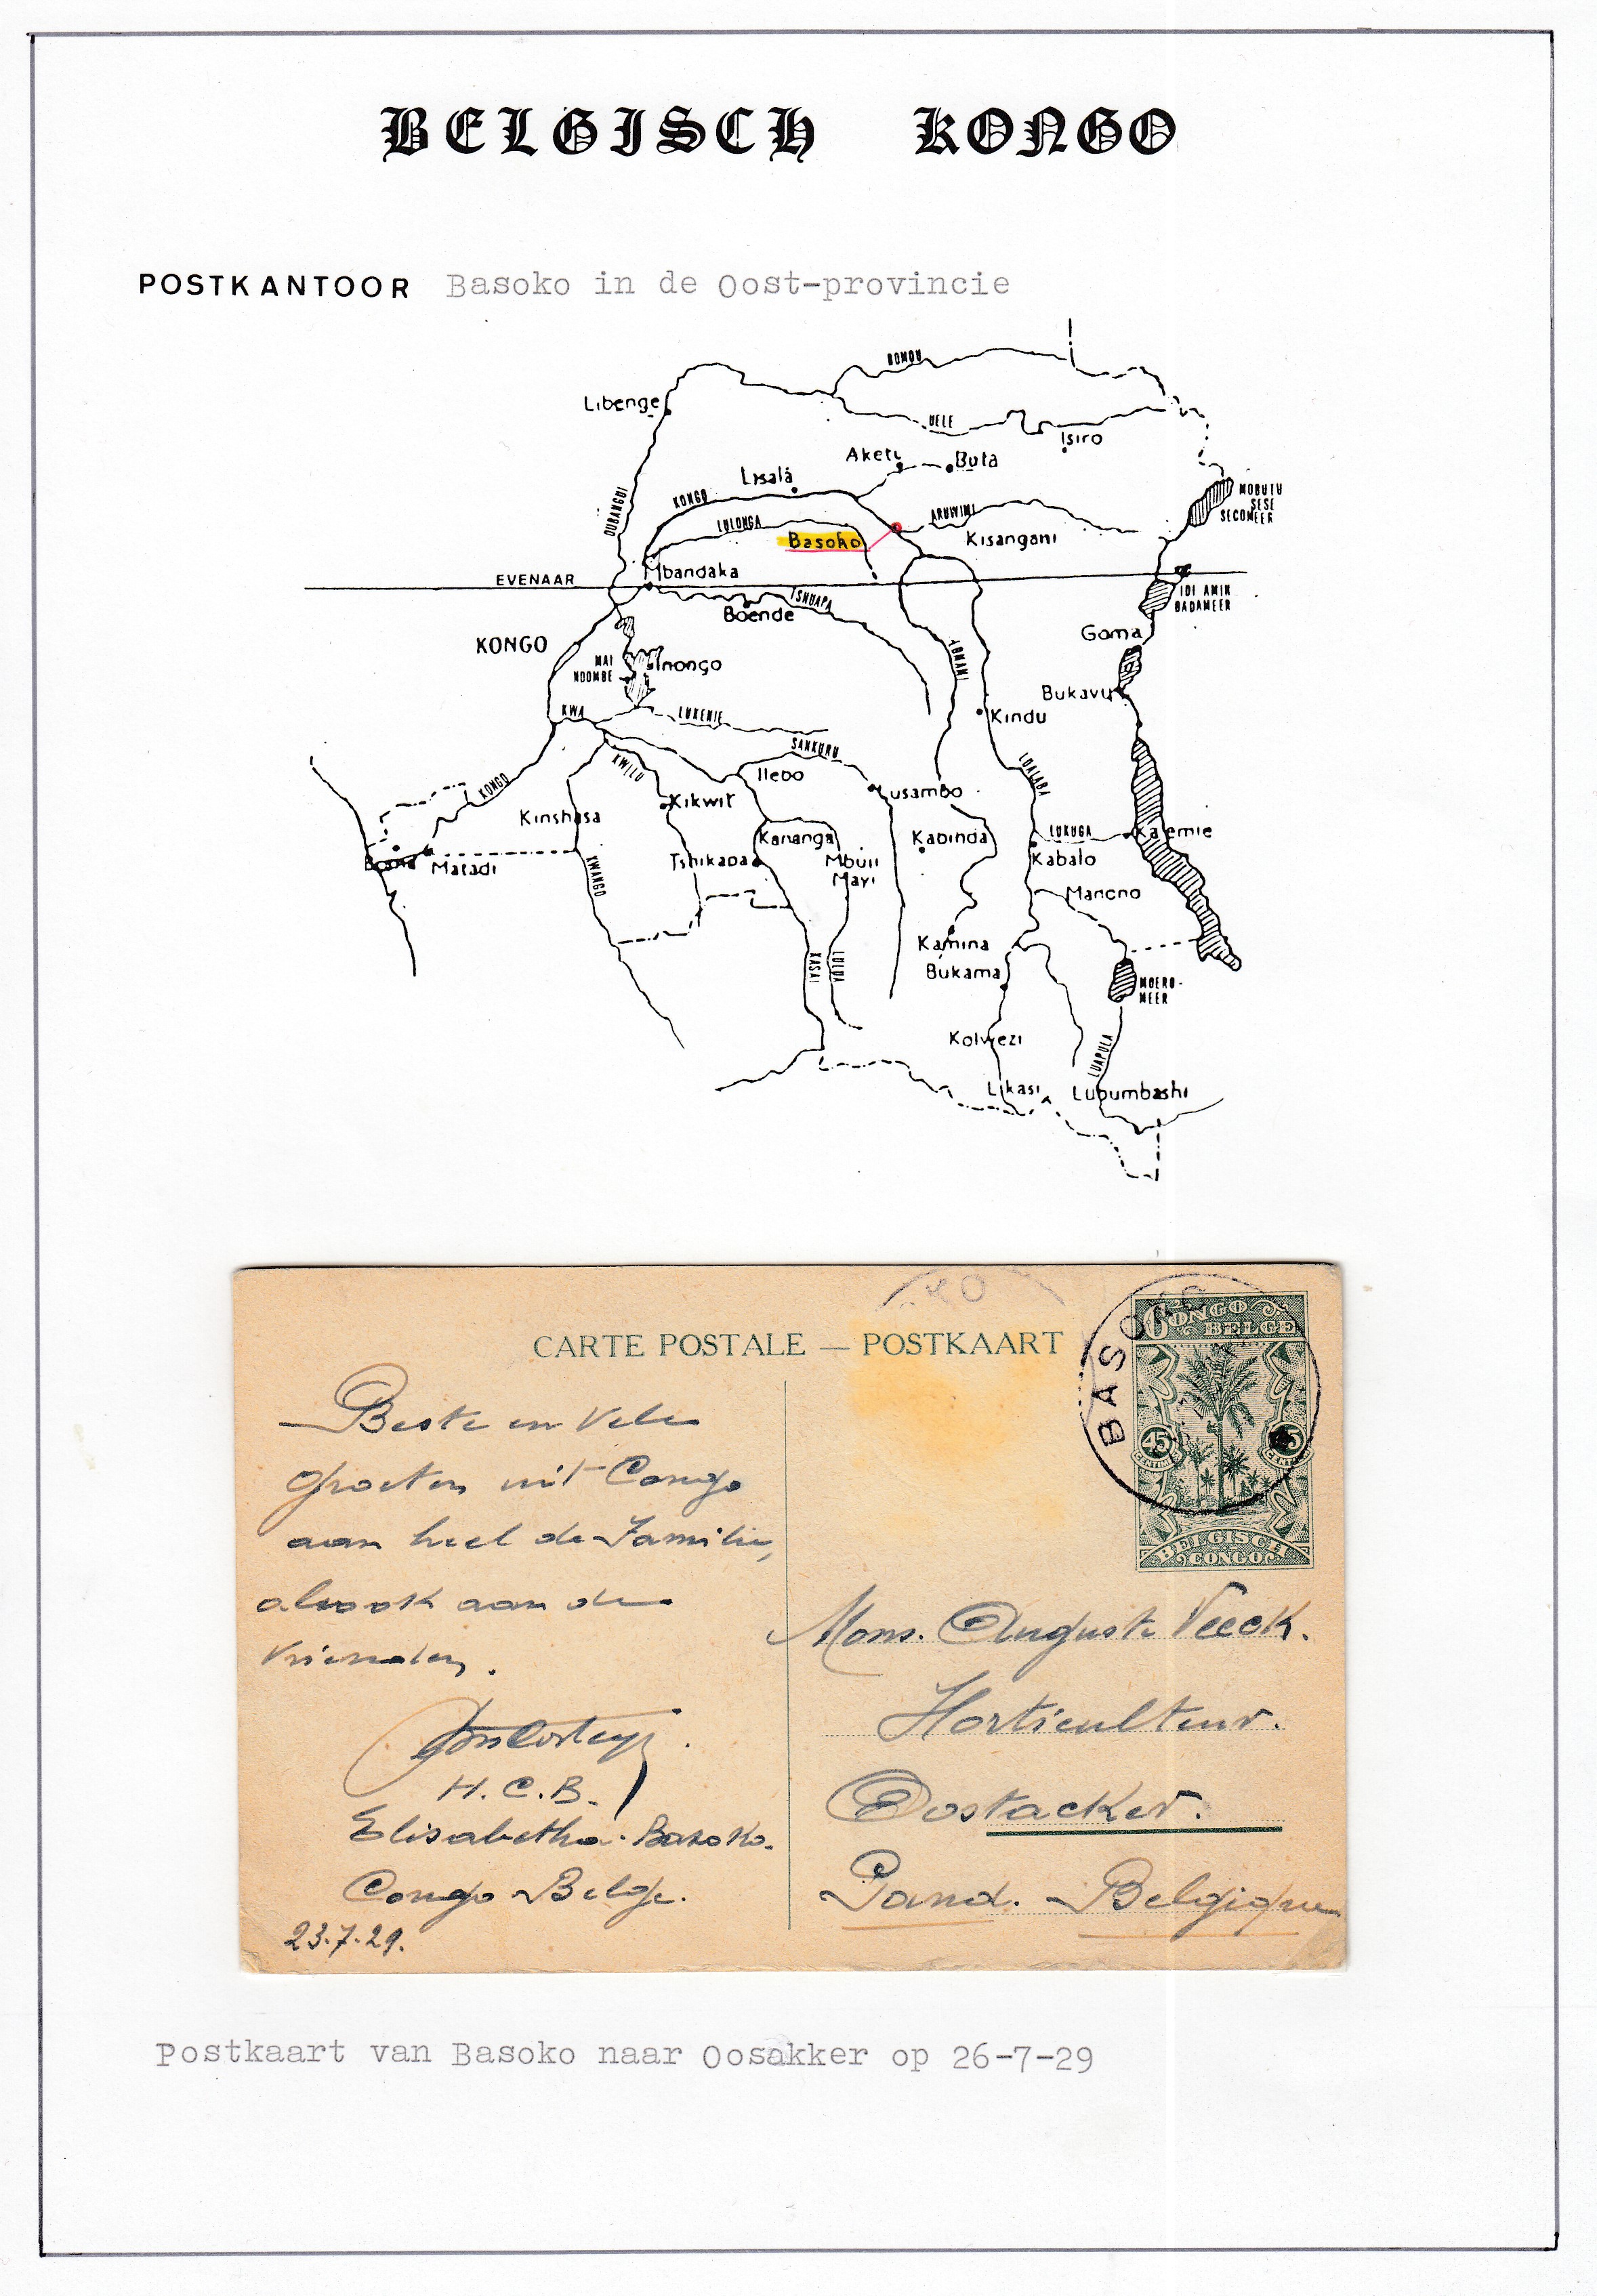 BELGISCH KONGO
POSTKANTOOR Basoko in de Oost-provincie
BOMOU
Libenge
UELE
Isiro
Aketi
Buta
Lisala
MOBUTU
SESE
SECOMEER
OUBANGUI
KONGO
LULONGA
ARUWIMI
Basoko
Kisangani
Mbandaka
EVENAAR
TSHUAPA
IDI AMIN
DADAMEER
Boende
Goma
KONGO
LOMAMI
MAI
NDOMBE
Inongo
Bukavu
KWA
LUKENIE
Kindu
SANKURU
KWILU
Ilebo
LUALABA
KONGO
Lusambo
Kikwit
Kinshasa
Kananga
Kabinda
LUKUGA
Kalemie
Boma
Matadi
Tshikapa
Mbuji
Mayi
Kabalo
KWANGO
Manono
Kamina
KASAI
LULUA
Bukama
MOERO-
MEER
Kolwezi
LUAPULA
Likasi
Lubumbashi
KO
BASOKO
CONGO
BELGE
CARTE POSTALE — POSTKAART
45
CENTIMES
45
CENTIMES
BELGISCH
CONGO
Beste en vele
groeten uit Congo
aan heel de Familie,
alsook aan de
Vrienden.
H.C.B.
Elisabetha. Basoko.
Congo Belge.
23.7.29.
Mons. Auguste Veeck.
Horticulteur.
Oostacker.
Gand. - Belgique
Postkaart van Basoko naar Oosakker op 26-7-29